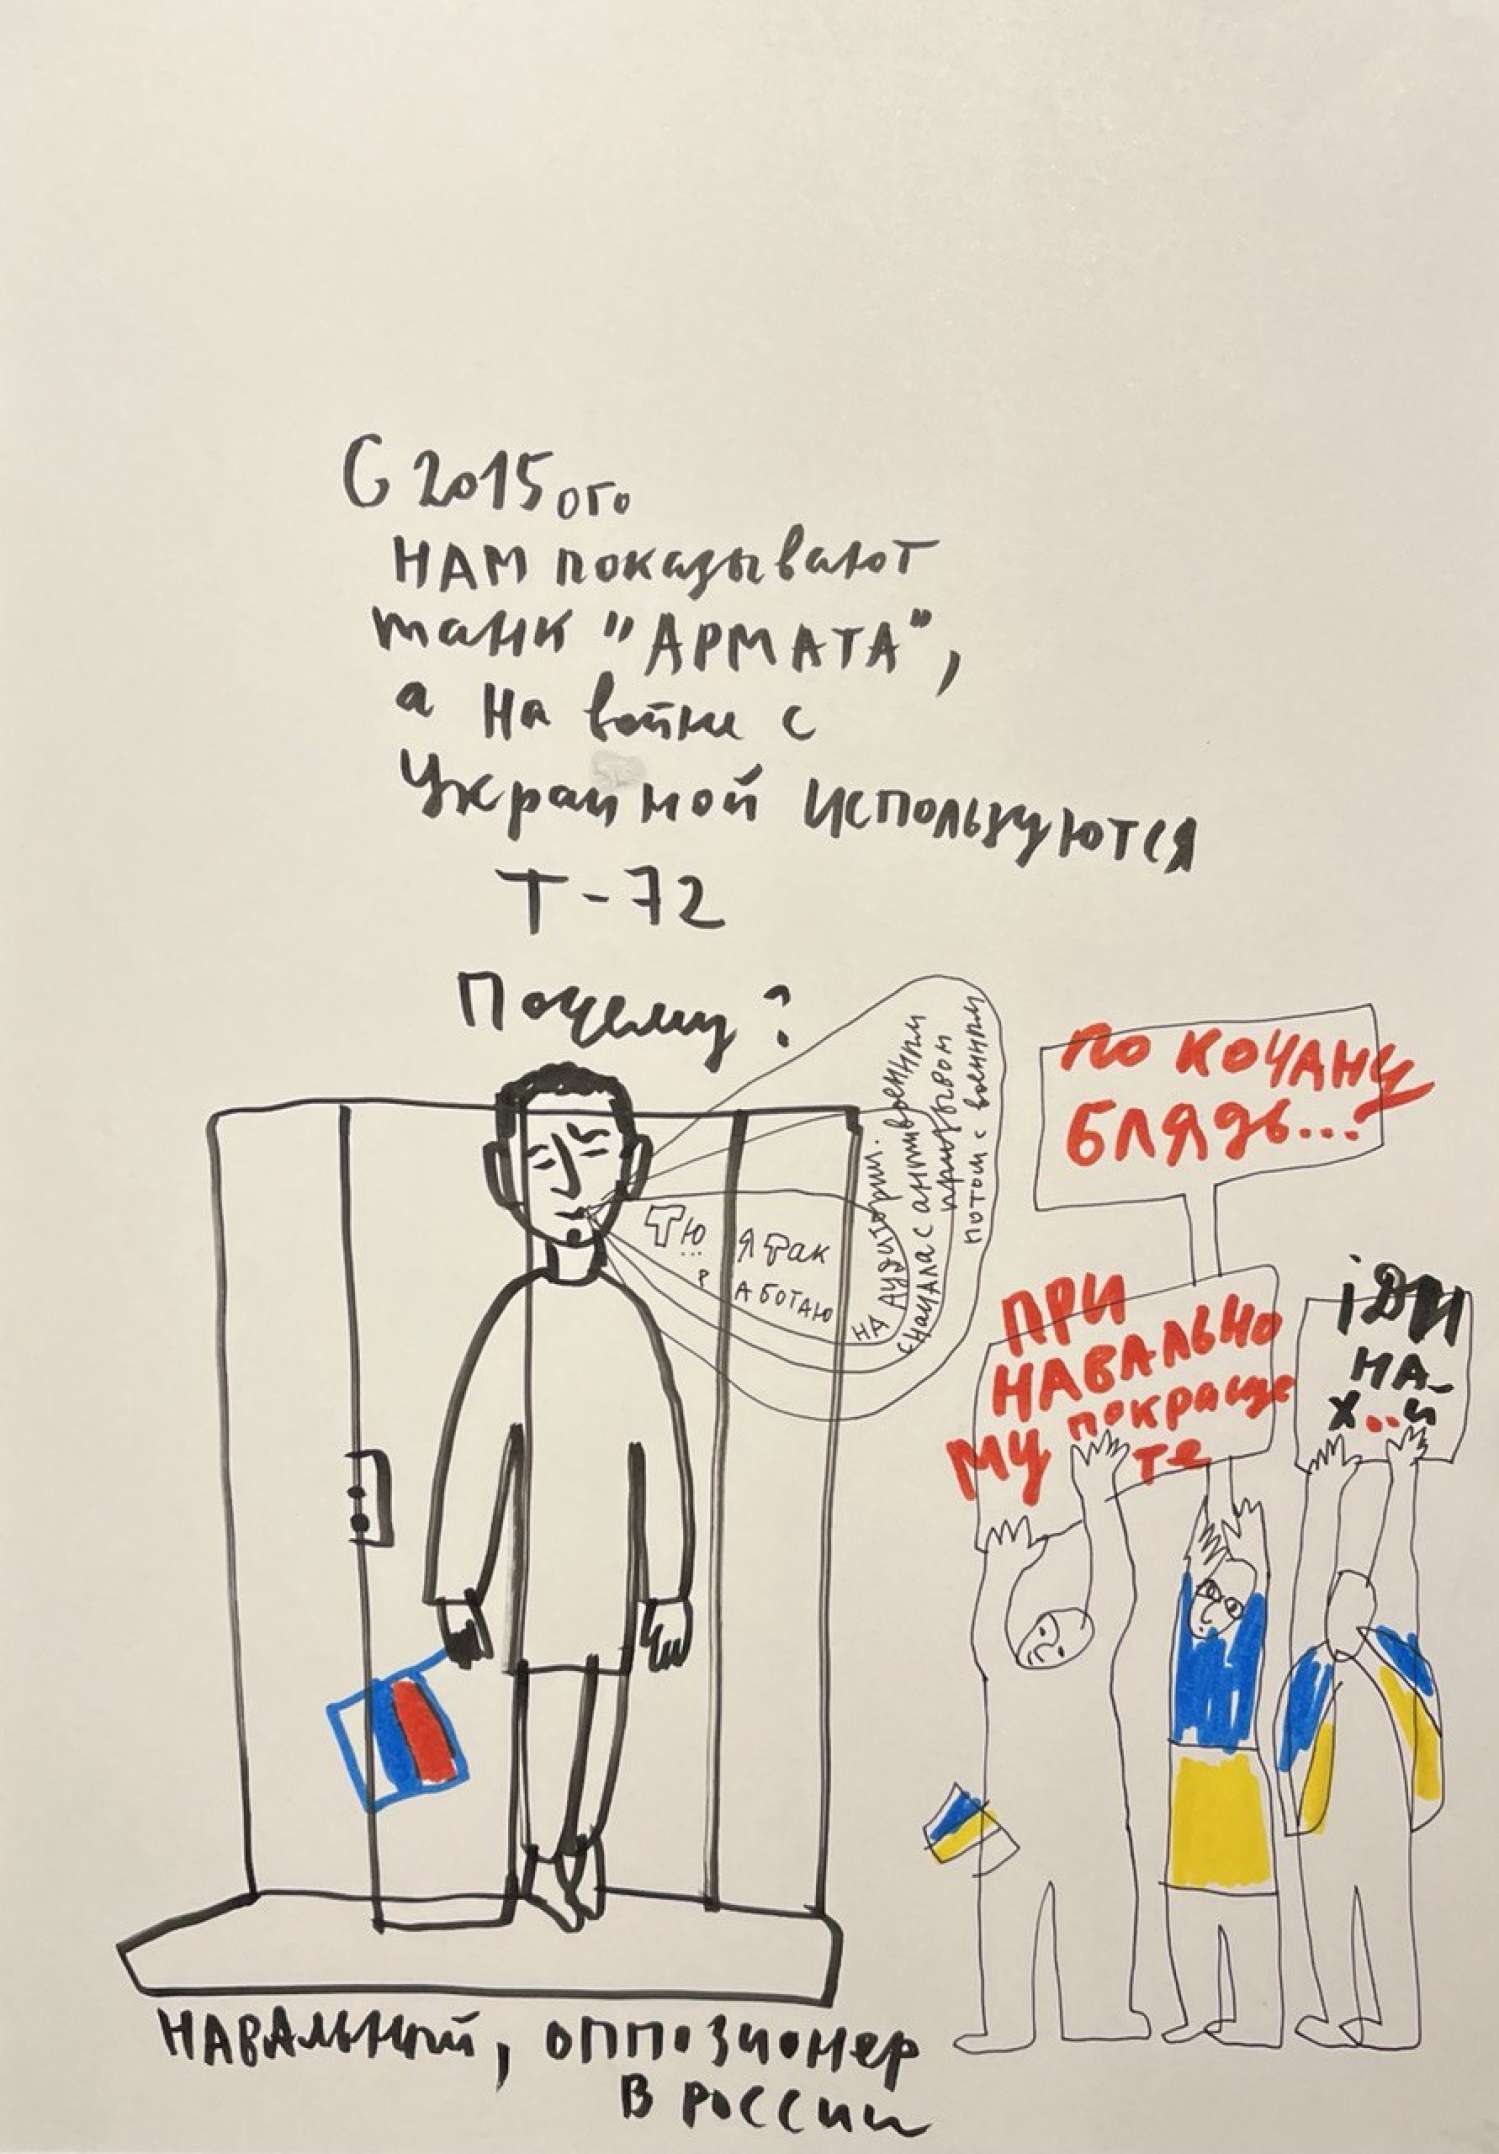 С 2015ого
НАМ показывают
танк "АРМАТА",
а на войне с
Украиной используются
Т-72
Почему?
Тю... я так
работаю
на аудитории.
сначала с антивоенным
призывом
потом с военным
по кочану
блядь...
ПРИ
НАВАЛЬНО
МУ покраще
те
іди
на
х..й
НАВАЛЬНЫЙ, оппозионер
в россии